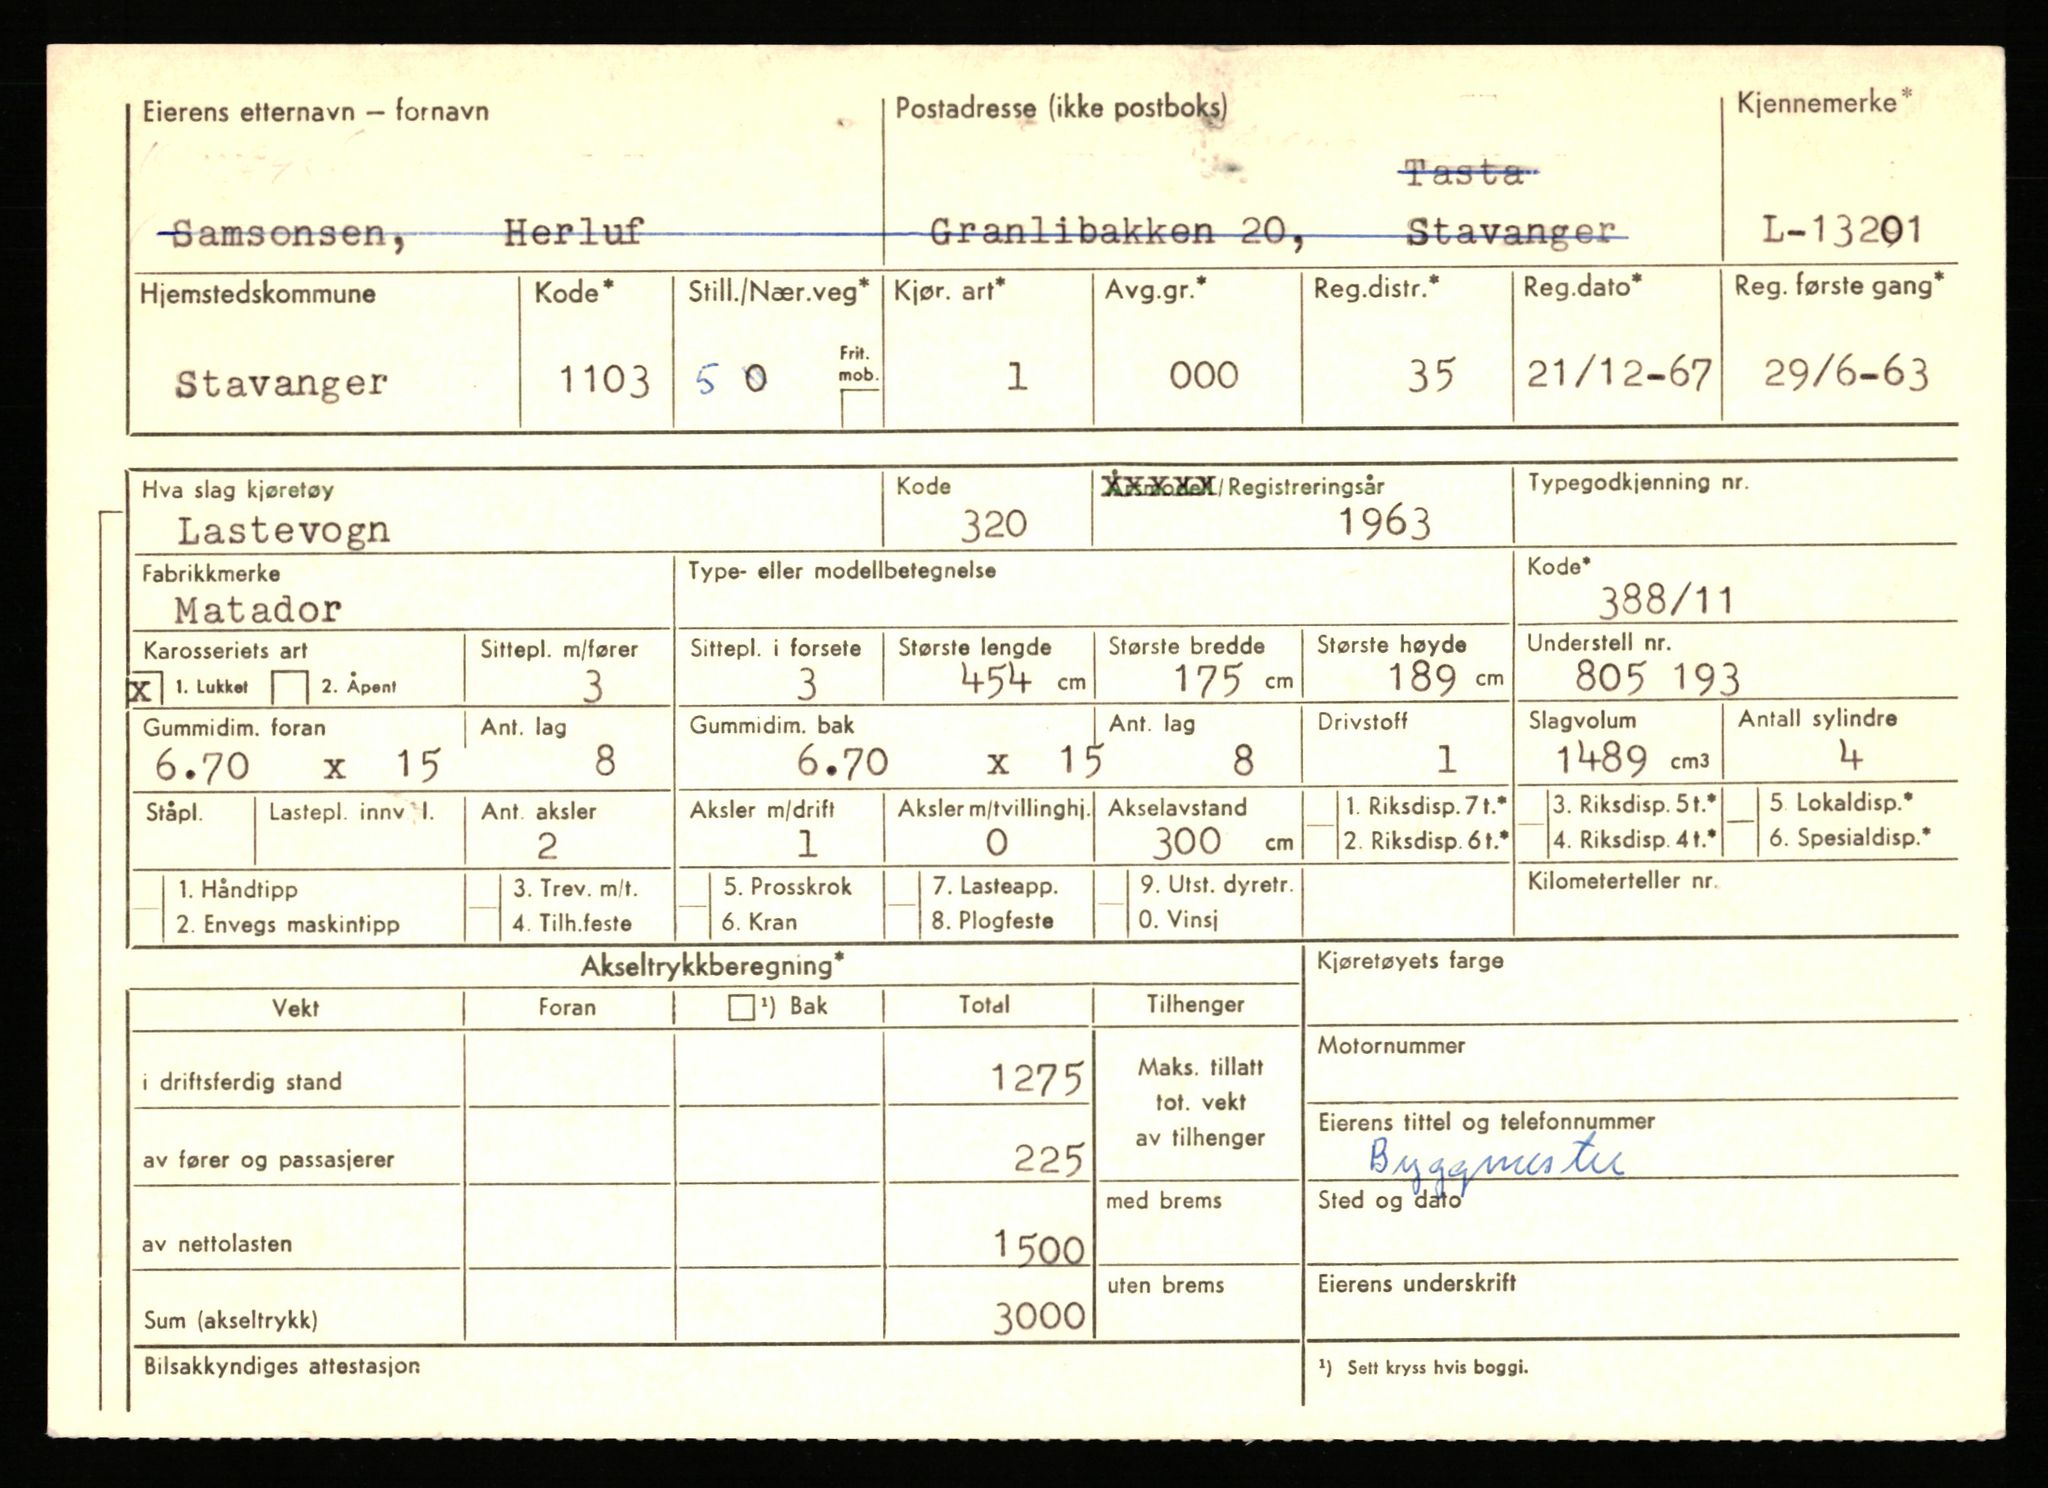 Eierens etternavn – fornavn Postadresse (ikke postboks) Kjennemerke*
Tasta
Samsonsen, Herluf Granlibakken 20, Stavanger L-13201
Hjemstedskommune Kode* Still./Nær.veg* Kjør. art* Avg.gr.* Reg.distr.* Reg.dato* Reg. første gang*
Frit. mob.
Stavanger 1103 5 0 1 000 35 21/12-67 29/6-63
Hva slag kjøretøy Kode Årsmodell/Registreringsår Typegodkjenning nr.
Lastevogn 320 1963
Fabrikkmerke Type- eller modellbetegnelse Kode*
Matador 388/11
Karosseriets art Sittepl. m/fører Sittepl. i forsete Største lengde Største bredde Største høyde Understell nr.
X 1. Lukket 2. Åpent 3 3 454 cm 175 cm 189 cm 805 193
Gummidim. foran Ant. lag Gummidim. bak Ant. lag Drivstoff Slagvolum Antall sylindre
6.70 x 15 8 6.70 x 15 8 1 1489 cm3 4
Ståpl. Lastepl. innv. l. Ant. aksler Aksler m/drift Aksler m/tvillinghj. Akselavstand 1. Riksdisp. 7 t.* 3. Riksdisp. 5 t.* 5. Lokaldisp.*
2 1 0 300 cm 2. Riksdisp. 6 t.* 4. Riksdisp. 4 t.* 6. Spesialdisp.*
1. Håndtipp 3. Trev. m/t. 5. Prosskrok 7. Lasteapp. 9. Utst. dyretr. Kilometerteller nr.
2. Envegs maskintipp 4. Tilh.feste 6. Kran 8. Plogfeste 0. Vinsj
Akseltrykkberegning* Kjøretøyets farge
Vekt Foran ¹) Bak Total Tilhenger
Motornummer
i driftsferdig stand 1275 Maks. tillatt
tot. vekt
av tilhenger
Eierens tittel og telefonnummer
av fører og passasjerer 225 Byggmester
med brems Sted og dato
av nettolasten 1500
uten brems Eierens underskrift
Sum (akseltrykk) 3000
Bilsakkyndiges attestasjon ¹) Sett kryss hvis boggi.